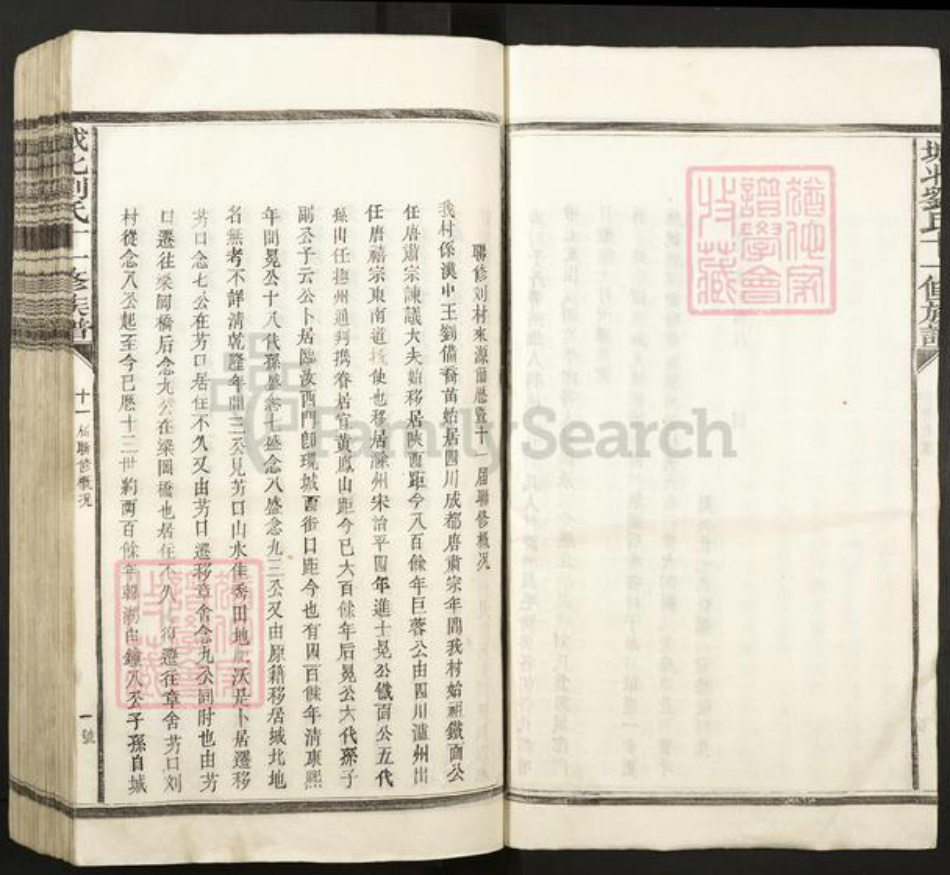 城北劉氏十一修族譜
聯修刘村來源簡歷暨十一屆聯修概况
我村係漢中王劉備裔苗始居四川成都唐肅宗年間我村始祖鐵面公
任唐肅宗諫議大夫始移居陝西距今八百餘年巨蓉公由四川瀘州出
任唐禧宗東南道 使也移居滁州宋治平四年進士晃公鐵面公五代
孫出任撫州通判携眷居官黄鳳山距今已大百餘年后晃公六代孫子
嗣公子云公卜居臨汝西門卽現城西街口距今也有四百餘年清康熙
年間晃公十八代孫盛念七盛念八盛念九三公又由原籍移居城北地
名無考不詳清乾隆年間三公見艻口山水佳秀田地肥沃是卜居遷移
艻口念七公在艻口居住不久又由艻口遷移章舍念九公同时也由艻
口遷往梁岡橋后念九公在梁岡橋也居住不久 復遷往章舍艻口刘
村從念八公起至今已歷十三世約兩百餘年韓湖由鐘八公子孫自城
城北劉氏十一修族譜
十一屆聯修概况
一號
猶他家
譜學會
收藏
猶他家
譜學會
收藏
FamilySearch